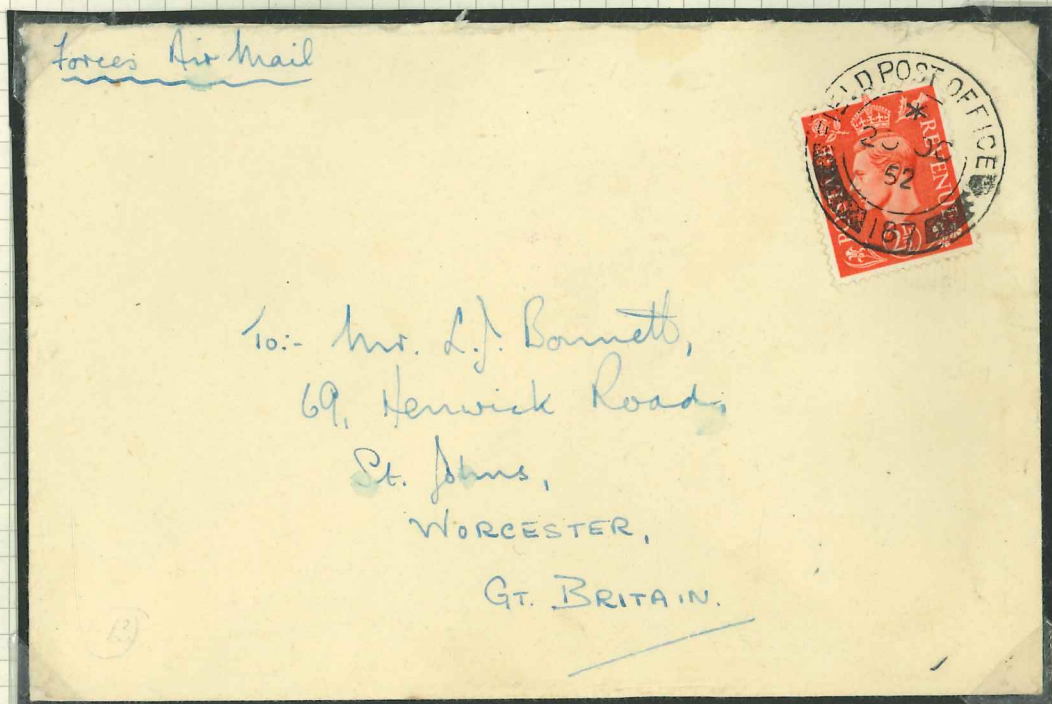 Forces Air Mail
FIELD POST OFFICE
*
52
187
POSTAGE REVENUE
2½
To:- Mr. L.J. Bonnett,
69, Henwick Road,
St. Johns,
WORCESTER,
GT. BRITAIN.